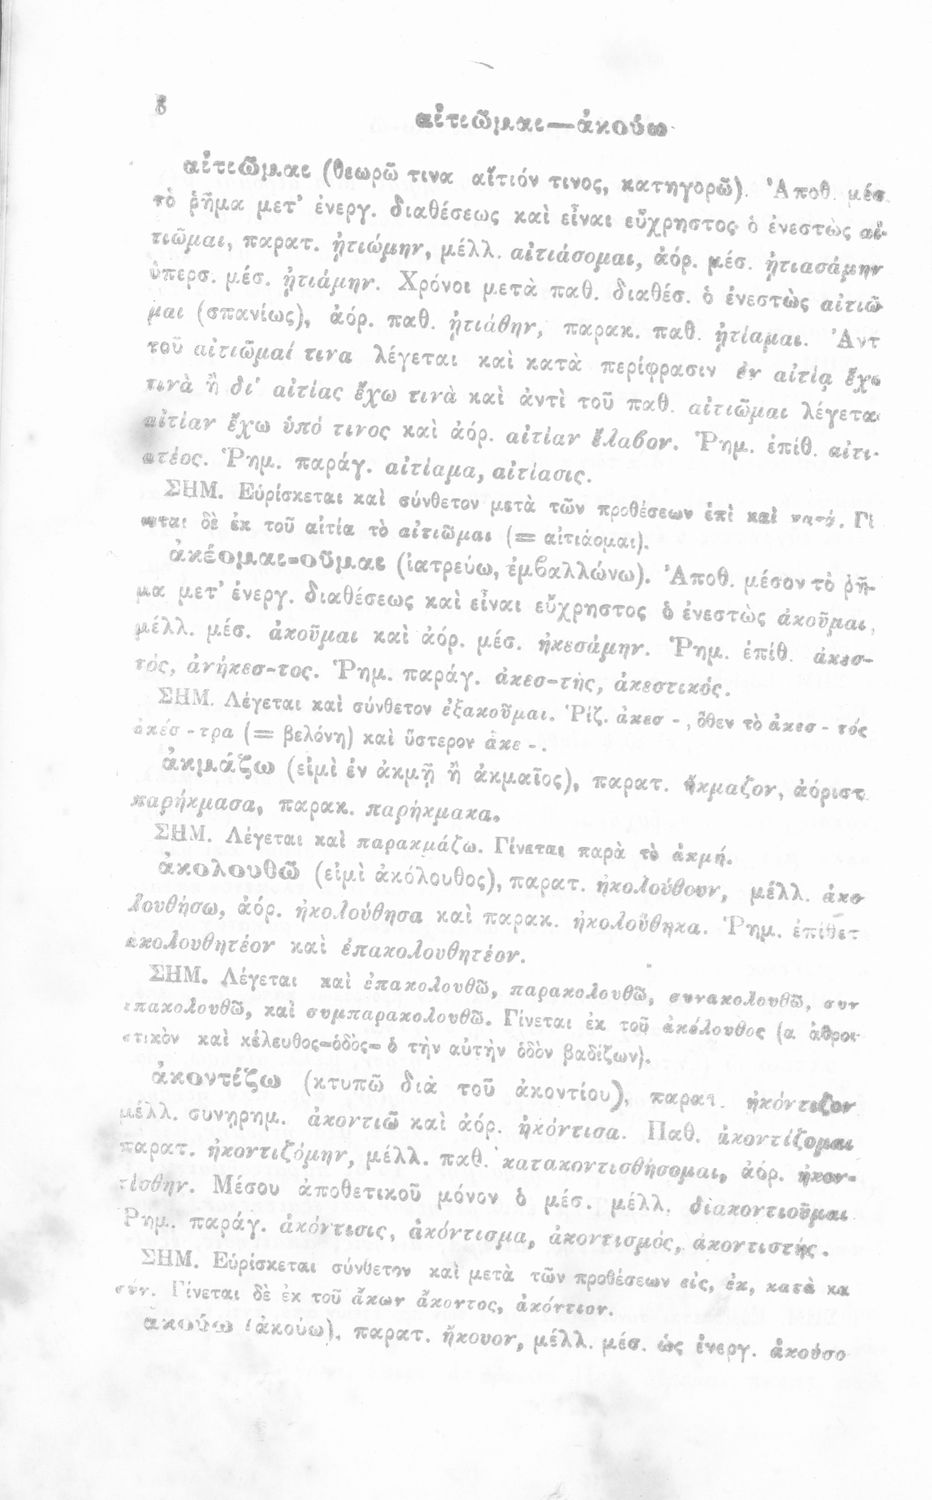 8
αἰτιῶμαι—ἀκούω
αἰτιῶμαι (θεωρῶ τινα αἴτιόν τινος, κατηγορῶ). Ἀποθ. μέσ.
τὸ ῥῆμα μετ' ἐνεργ. διαθέσεως καὶ εἶναι εὔχρηστος ὁ ἐνεστὼς αἰ-
τιῶμαι, παρατ. ᾐτιώμην, μέλλ. αἰτιάσομαι, ἀόρ. μέσ. ᾐτιασάμην
ὑπερσ. μέσ. ᾐτιάμην. Χρόνοι μετὰ παθ. διαθέσ. ὁ ἐνεστὼς αἰτιῶ
μαι (σπανίως), ἀόρ. παθ. ᾐτιάθην, παρακ. παθ. ᾐτίαμαι. Ἀντ
τοῦ αἰτιῶμαί τινα λέγεται καὶ κατὰ περίφρασιν ἐν αἰτίᾳ ἔχω
τινὰ ἢ δι' αἰτίας ἔχω τινὰ καὶ ἀντὶ τοῦ παθ. αἰτιῶμαι λέγεται
αἰτίαν ἔχω ὑπό τινος καὶ ἀόρ. αἰτίαν ἔλαβον. Ῥημ. ἐπίθ. αἰτι-
ατέος. Ῥημ. παράγ. αἰτίαμα, αἰτίασις.
ΣΗΜ. Εὑρίσκεται καὶ σύνθετον μετὰ τῶν προθέσεων ἐπὶ καὶ κατά. Γί
νεται δὲ ἐκ τοῦ αἰτία τὸ αἰτιῶμαι (= αἰτιάομαι).
ἀκέομαι=οῦμαι (ἰατρεύω, ἐμβαλλώνω). Ἀποθ. μέσον τὸ ῥῆ-
μα μετ' ἐνεργ. διαθέσεως καὶ εἶναι εὔχρηστος ὁ ἐνεστὼς ἀκοῦμαι,
μέλλ. μέσ. ἀκοῦμαι καὶ ἀόρ. μέσ. ἠκεσάμην. Ῥημ. ἐπίθ. ἀκεσ-
τός, ἀνήκεσ-τος. Ῥημ. παράγ. ἀκεσ-τής, ἀκεστικός.
ΣΗΜ. Λέγεται καὶ σύνθετον ἐξακοῦμαι. Ῥίζ. ἀκεσ - , ὅθεν τὸ ἀκεσ - τός
ἀκέσ - τρα (= βελόνη) καὶ ὕστερον ἀκε - .
ἀκμάζω (εἰμὶ ἐν ἀκμῇ ἢ ἀκμαῖος), παρατ. ἤκμαζον, ἀόριστ.
παρήκμασα, παρακ. παρήκμακα.
ΣΗΜ. Λέγεται καὶ παρακμάζω. Γίνεται παρὰ τὸ ἀκμή.
ἀκολουθῶ (εἰμὶ ἀκόλουθος), παρατ. ἠκολούθουν, μέλλ. ἀκο
λουθήσω, ἀόρ. ἠκολούθησα καὶ παρακ. ἠκολούθηκα. Ῥημ. ἐπίθετ
ἀκολουθητέον καὶ ἐπακολουθητέον.
ΣΗΜ. Λέγεται καὶ ἐπακολουθῶ, παρακολουθῶ, συνακολουθῶ, συν
επακολουθῶ, καὶ συμπαρακολουθῶ. Γίνεται ἐκ τοῦ ἀκόλουθος (α ἀθροι-
στικὸν καὶ κέλευθος=ὁδὸς= ὁ τὴν αὐτὴν ὁδὸν βαδίζων).
ἀκοντίζω (κτυπῶ διὰ τοῦ ἀκοντίου), παρατ. ἠκόντιζον
μέλλ. συνῃρημ. ἀκοντιῶ καὶ ἀόρ. ἠκόντισα. Παθ. ἀκοντίζομαι
παρατ. ἠκοντιζόμην, μέλλ. παθ. κατακοντισθήσομαι, ἀόρ. ἠκον-
τίσθην. Μέσου ἀποθετικοῦ μόνον ὁ μέσ. μέλλ. διακοντιοῦμαι
Ῥημ. παράγ. ἀκόντισις, ἀκόντισμα, ἀκοντισμός, ἀκοντιστής.
ΣΗΜ. Εὑρίσκεται σύνθετον καὶ μετὰ τῶν προθέσεων εἰς, ἐκ, κατὰ κα
σύν. Γίνεται δὲ ἐκ τοῦ ἄκων ἄκοντος, ἀκόντιον.
ἀκούω (ἀκούω), παρατ. ἤκουον, μέλλ. μέσ. ὡς ἐνεργ. ἀκούσο